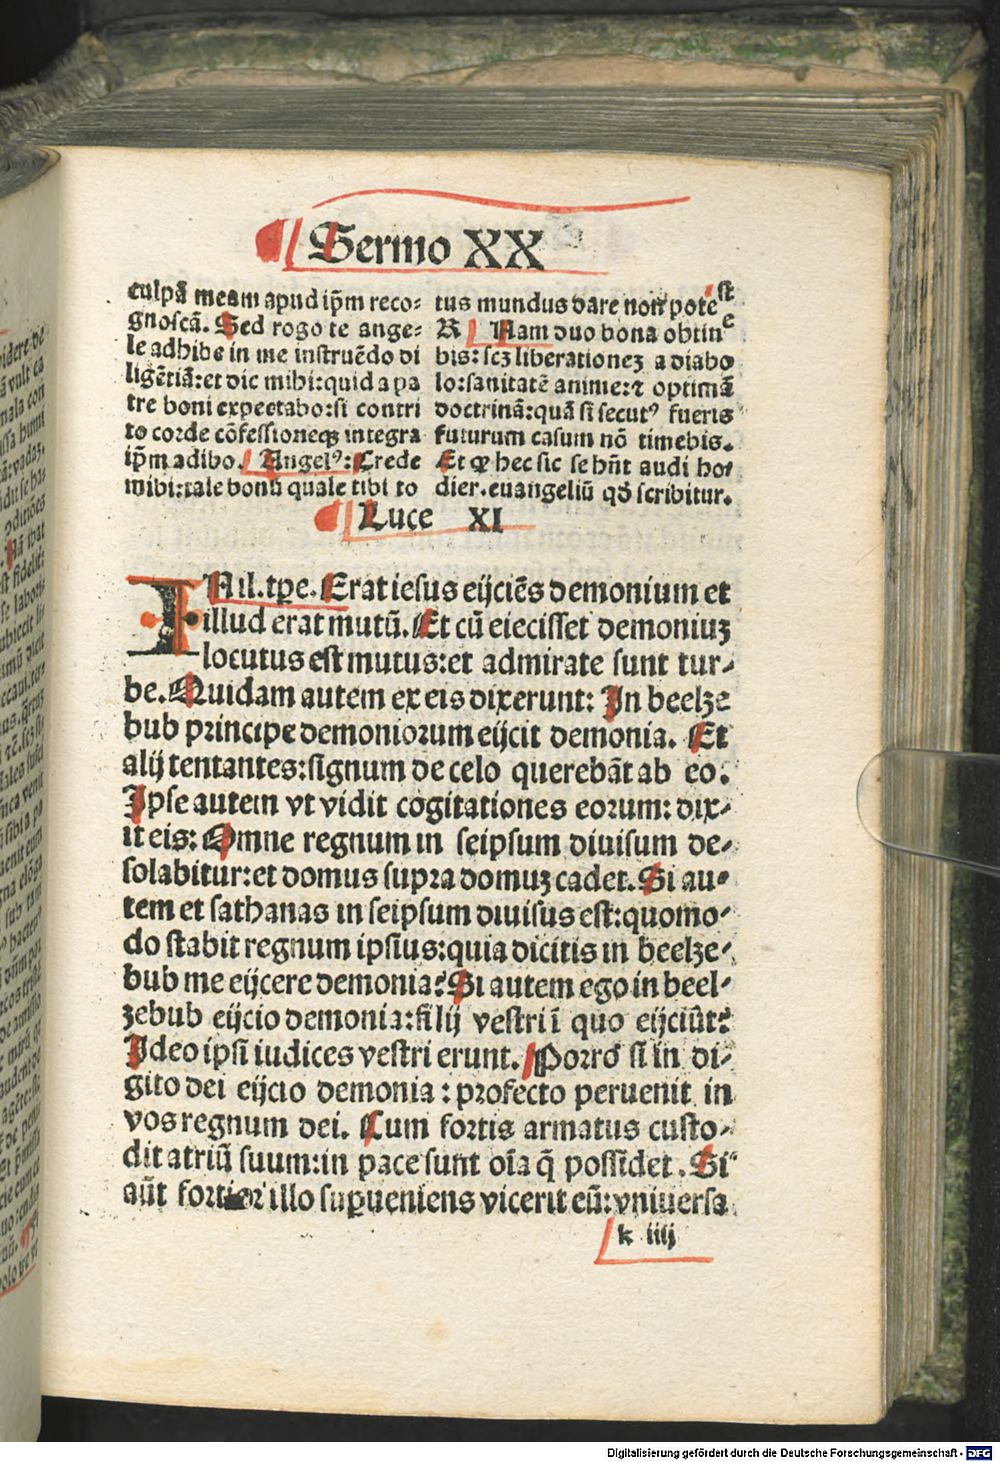 Sermo XX
culpã meam apud ip̃m reco⸗
gnoscã. Sed rogo te ange⸗
le adhibe in me instruẽdo di
ligẽtiã: et dic mihi: quid a pa
tre boni expectabo: si contri
to corde cõfessionēq3 integra
ip̃m adibo. Angelꝰ: Crede
mihi: tale bonũ quale tibi to
tus mundus dare non potest
R Nam duo bona obtine
bis: scz liberationez a diabo
lo: sanitatẽ anime: ⁊ optimã
doctrinã: quã si secutꝰ fueris
futurum casum nõ timebis.
Et ꝙ hec sic se hñt audi ho⸗
dier. euangeliũ qđ scribitur.
Luce XI
IN il. tꝑe. Erat iesus eijciẽs demonium et
illud erat mutũ. Et cũ eiecisset demoniuz
locutus est mutus: et admirate sunt tur⸗
be. Quidam autem ex eis dixerunt: In beelze
bub principe demoniorum eijcit demonia. Et
alij tentantes: signum de celo querebãt ab eo.
Ipse autem vt vidit cogitationes eorum: dix⸗
it eis: Omne regnum in seipsum diuisum de⸗
solabitur: et domus supra domuz cadet. Si au⸗
tem et sathanas in seipsum diuisus est: quomo⸗
do stabit regnum ipsius: quia dicitis in beelze⸗
bub me eijcere demonia? Si autem ego in beel⸗
zebub eijcio demonia: filij vestri ĩ quo eijciũt?
Ideo ipsi iudices vestri erunt. Porro si in di⸗
gito dei eijcio demonia: profecto peruenit in
vos regnum dei. Cum fortis armatus custo⸗
dit atriũ suum: in pace sunt oĩa q̃ possidet. Si
aũt fortior illo suꝑueniens vicerit eũ: vniuersa
k iiij
Digitalisierung gefördert durch die Deutsche Forschungsgemeinschaft - DFG